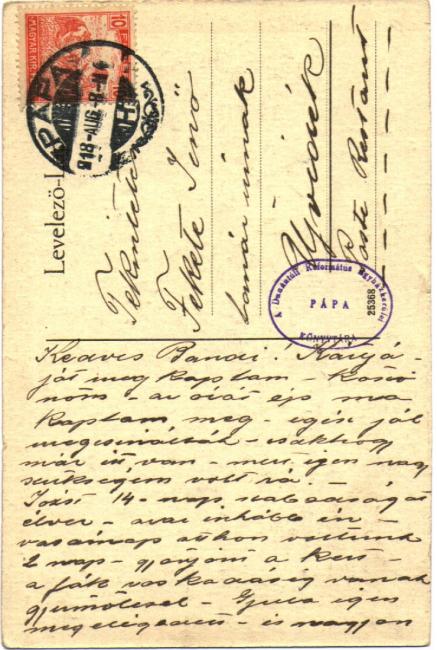 10
MAGYAR KIR
PÁPA
918-AUG-8
Levelező-L
Tekintetes
Fekete Jenő
tanár úrnak
Ujvidék
Poste Restante
A Dunántúli Református Egyházkerület
PÁPA
KÖNYVTÁRA
25368
Kedves Bandi! Kártyá-
ját megkaptam - köszö
nöm - az órát és ma
kaptam meg - igen jól
megcsinálták - csakhogy
már itt van - mert igen nagy
szükségem volt rá.
14 - nap szabadságát
élvez - azaz inkább én -
vasárnap voltunk
2 nap - a kert -
a fák vaskadásig vannak
gyümölcsel - Gyula igen
megelégedett - és nagyon